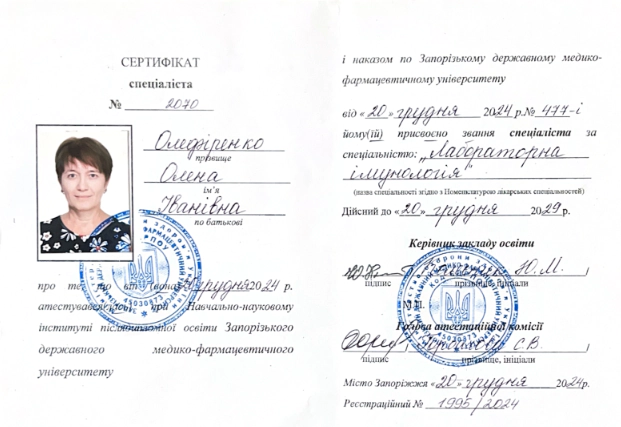 СЕРТИФІКАТ
спеціаліста
№ 2070
Олефіренко
прізвище
Олена
ім'я
Іванівна
по батькові
про те, що він (вона) грудня 2024 р.
при Навчально-науковому
інституті післядипломної освіти Запорізького
державного медико-фармацевтичного
університету
і наказом по Запорізькому державному медико-
фармацевтичному університету
від «20» грудня 2024 р. № 477-і
йому(їй) присвоєно звання спеціаліста за
спеціальністю: „Лабораторна
імунологія"
(назва спеціальності згідно з Номенклатурою лікарських спеціальностей)
Дійсний до «20» грудня 2029 р.
Керівник закладу освіти
Ю.М.
підпис прізвище, ініціали
М.П.
Голова атестаційної комісії
С.В.
підпис прізвище, ініціали
Місто Запоріжжя «20» грудня 2024р.
Реєстраційний № 1995/2024
45030873